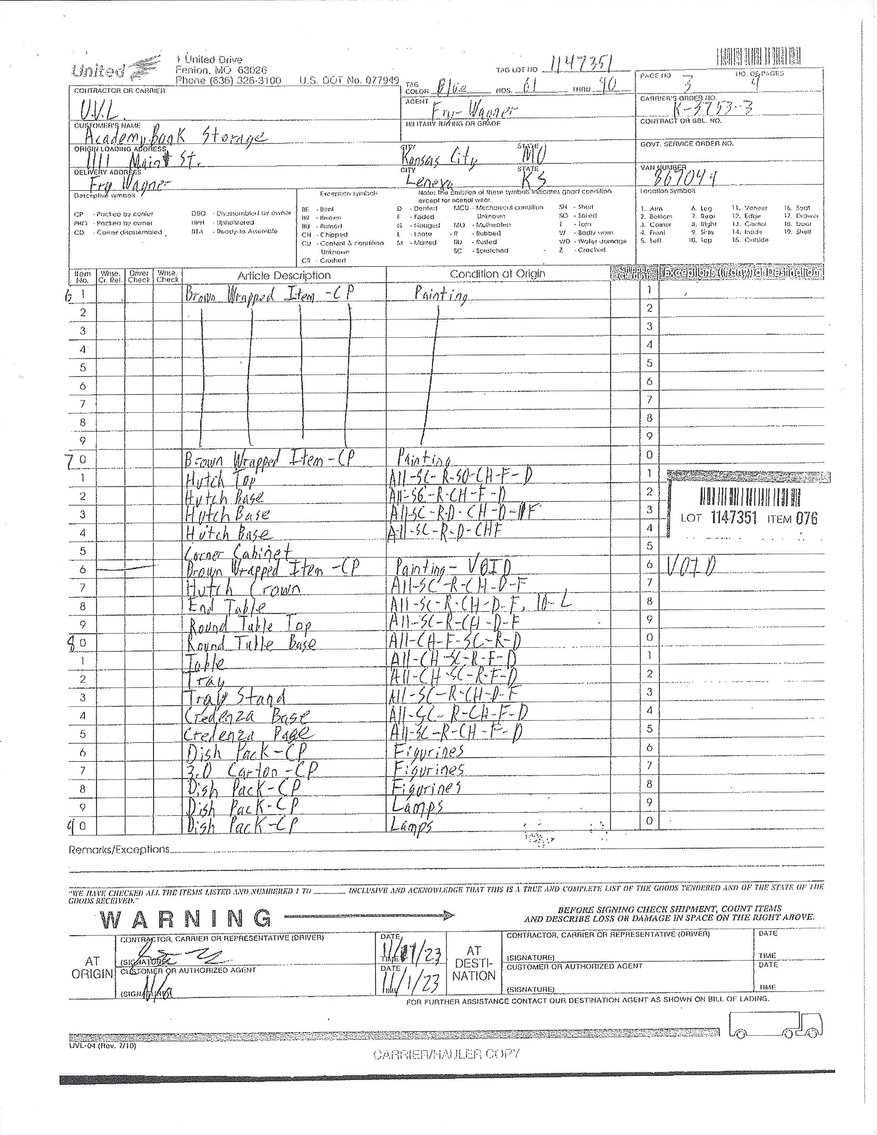 United
1 United Drive
Fenton, MO 63026
Phone (636) 326-3100 U.S. DOT No. 077949
TAG LOT NO 1147351
TAG COLOR Blue NOS. 61 THRU 90
PAGE NO 3 NO. OF PAGES 4
CONTRACTOR OR CARRIER
U.V.L.
AGENT
Fry-Wagner
CARRIER'S ORDER NO.
K-5753-3
CUSTOMER'S NAME
Academy Bank Storage
MILITARY RATING OR GRADE
CONTRACT OR GBL NO.
ORIGIN LOADING ADDRESS
1111 Main St.
CITY Kansas City STATE MO
GOVT. SERVICE ORDER NO.
DELIVERY ADDRESS
Fry Wagner
CITY Lenexa STATE KS
VAN NUMBER
Descriptive symbols
CP - Packed by carrier DBO - Disassembled by owner
PBO - Packed by owner
CD - Carrier disassembled RTA - Ready-to-Assemble
Exception symbols
Note: the omission of these symbols indicates good condition except for normal wear.
BE - Bent D - Dented MCU - Mechanical condition Unknown SH - Short
BR - Broken F - Faded SO - Soiled
BU - Burned G - Gouged MO - Motheaten T - Torn
CH - Chipped L - Loose R - Rubbed W - Badly worn
CU - Content & condition Unknown M - Marred RU - Rusted WD - Water damage
CR - Crushed SC - Scratched Z - Cracked
Location Symbols
1. Arm 6. Leg 11. Veneer 16. Seat
2. Bottom 7. Rear 12. Edge 17. Drawer
3. Corner 8. Right 13. Center 18. Door
4. Front 9. Side 14. Inside 19. Shelf
5. Left 10. Top 15. Outside
Item No. Whse. Cr. Rel. Driver Check Whse. Check Article Description Condition at Origin Exceptions (if any) at Destination
6 1 Brown Wrapped Item-CP Painting 1
2 2
3 3
4 4
5 5
6 6
7 7
8 8
9 9
7 0 Brown Wrapped Item-CP Painting 0
1 Hutch Top All-SC-R-SO-CH-F-D 1
2 Hutch Base All-SC-R-CH-F-D 2
3 Hutch Base 3
4 Hutch Base All-SC-R-D-CHF 4
LOT 1147351 ITEM 076
5 Corner Cabinet 5
6 Brown Wrapped Item-CP Painting-VOID 6 VOID
7 Hutch Crown All-SC-R-CH-D-F 7
8 End Table All-SC-R-CH-D-F, 10-L 8
9 Round Table Top All-SC-R-CH-D-F 9
8 0 Round Table Base All-CH-F-SC-R-D 0
1 Table All-CH-SC-R-F-D 1
2 Tray All-CH-SC-R-F-D 2
3 Tray Stand All-SC-R-CH-D-F 3
4 Credenza Base All-SC-R-CH-F-D 4
5 Credenza All-SC-R-CH-F-D 5
6 Dish Pack-CP Figurines 6
7 3.0 Carton-CP Figurines 7
8 Dish Pack-CP Figurines 8
9 Dish Pack-CP Lamps 9
9 0 Dish Pack-CP Lamps 0
Remarks/Exceptions
"WE HAVE CHECKED ALL THE ITEMS LISTED AND NUMBERED 1 TO ______ INCLUSIVE AND ACKNOWLEDGE THAT THIS IS A TRUE AND COMPLETE LIST OF THE GOODS TENDERED AND OF THE STATE OF THE GOODS RECEIVED."
WARNING
BEFORE SIGNING CHECK SHIPMENT, COUNT ITEMS
AND DESCRIBE LOSS OR DAMAGE IN SPACE ON THE RIGHT ABOVE.
AT ORIGIN
CONTRACTOR, CARRIER OR REPRESENTATIVE (DRIVER) DATE
(SIGNATURE) TIME
CUSTOMER OR AUTHORIZED AGENT DATE
(SIGNATURE) N/a 11/1/23
AT DESTI-NATION
CONTRACTOR, CARRIER OR REPRESENTATIVE (DRIVER) DATE
(SIGNATURE) TIME
CUSTOMER OR AUTHORIZED AGENT DATE
(SIGNATURE) TIME
FOR FURTHER ASSISTANCE CONTACT OUR DESTINATION AGENT AS SHOWN ON BILL OF LADING.
UVL-04 (Rev. 7/10)
CARRIER/HAULER COPY